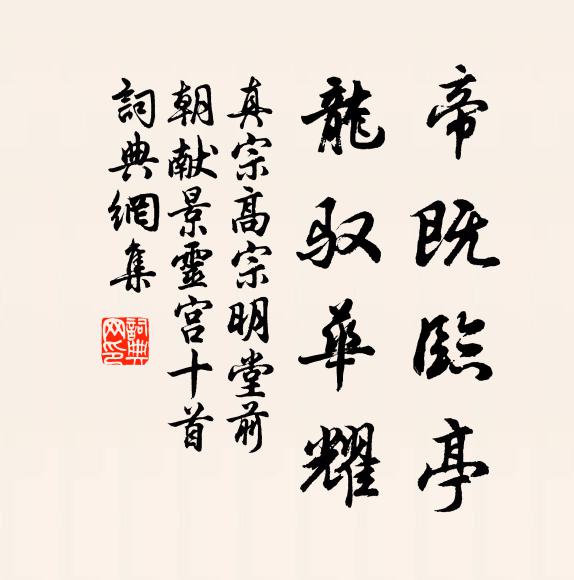 帝既臨亭
龍馭華耀
真宗高宗明堂前
朝献景靈宮十首
詞典網集
詞典
网印